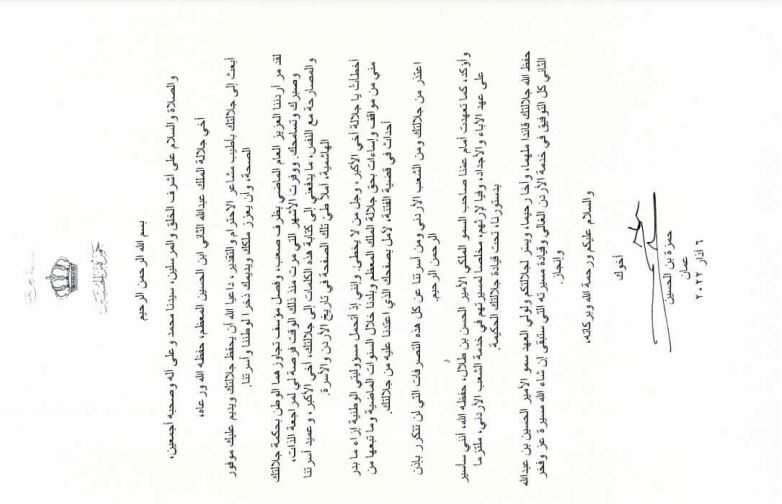 بسم الله الرحمن الرحيم
والصلاة والسلام على أشرف الخلق والمرسلين، سيدنا محمد وعلى آله وصحبه أجمعين،
أخي جلالة الملك عبدالله الثاني ابن الحسين المعظم، حفظه الله ورعاه،
أبعث إلى جلالتك بأطيب مشاعر الاحترام والتقدير، داعيا الله أن يحفظ جلالتك ويديم عليك موفور
الصحة، وأن يعزز ملكك ويديمك ذخرا لوطننا وأسرتنا.
لقد مر أردننا العزيز العام الماضي بظرف صعب، وفصل مؤسف تجاوزهما الوطن بحكمة جلالتك
وصبرك وتسامحك. ووفرت الأشهر التي مرت منذ ذلك الوقت فرصة لي لمراجعة الذات،
والمصارحة مع النفس، ما يدفعني إلى كتابة هذه الكلمات إلى جلالتك، أخي الأكبر، وعميد أسرتنا
الهاشمية، آملا طيّ تلك الصفحة في تاريخ الأردن والأسرة.
أخطأت يا جلالة أخي الأكبر، وجل من لا يخطئ. وإنني إذ أتحمل مسؤوليتي الوطنية إزاء ما بدر
مني من مواقف وإساءات بحق جلالة الملك المعظم وبلدنا خلال السنوات الماضية وما تبعها من
أحداث في قضية الفتنة، لآمل بصفحك الذي اعتدنا عليه من جلالتك.
اعتذر من جلالتك ومن الشعب الأردني ومن أسرتنا عن كل هذه التصرفات التي لن تتكرر بإذن
الرحمن الرحيم.
وأؤكد، كما تعهدت أمام عمنا صاحب السمو الملكي الأمير الحسن بن طلال، حفظه الله، أنني سأسير
على عهد الآباء والأجداد، وفيا لإرثهم، مخلصا لمسيرتهم في خدمة الشعب الأردني، ملتزما
بدستورنا، تحت قيادة جلالتك الحكيمة.
حفظ الله جلالتك قائدا ملهما، وأخا رحيما، ويسر لجلالتكم ولولي العهد سمو الأمير الحسين بن عبدالله
الثاني كل التوفيق في خدمة الأردن الغالي وقيادة مسيرته التي ستبقى إن شاء الله مسيرة عز وفخر
وإنجاز.
والسلام عليكم ورحمة الله وبركاته،
أخوك
حمزة بن الحسين
عمان
٦ آذار ٢٠٢٢